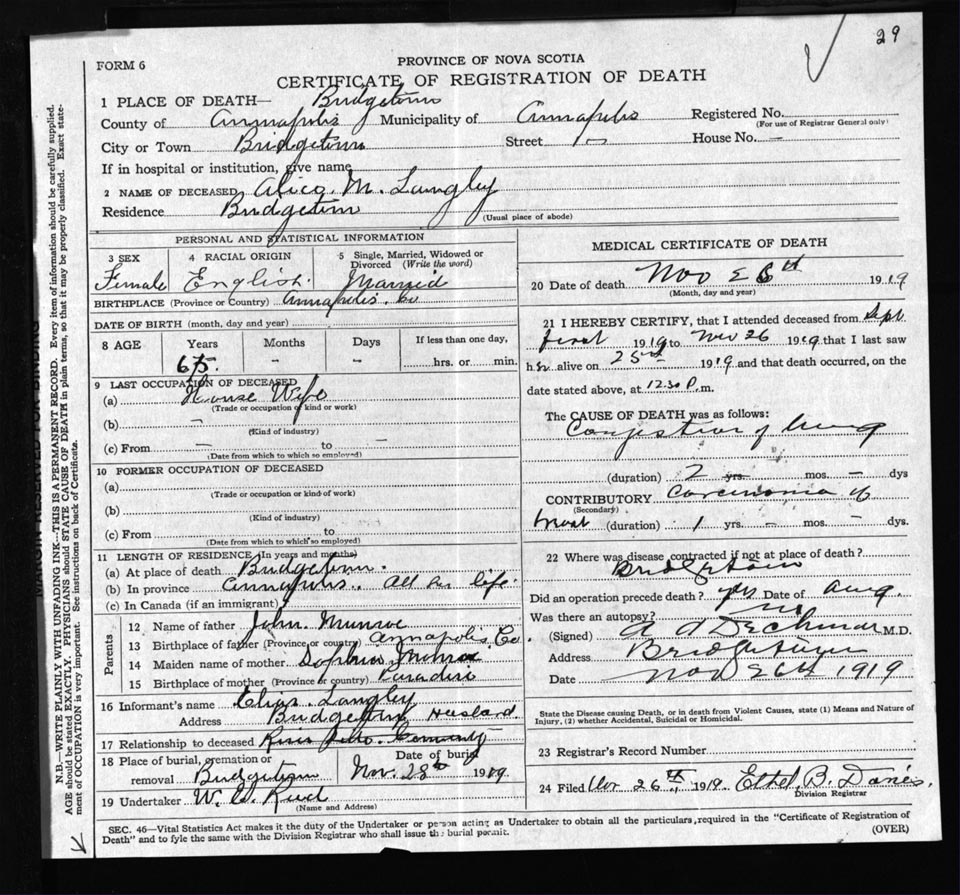 29
FORM 6
PROVINCE OF NOVA SCOTIA
CERTIFICATE OF REGISTRATION OF DEATH
1 PLACE OF DEATH— Bridgetown
County of Annapolis Municipality of Annapolis Registered No.
(For use of Registrar General only)
City or Town Bridgetown Street House No. —
If in hospital or institution, give name
2 NAME OF DECEASED Alice M. Langley
Residence Bridgetown
(Usual place of abode)
PERSONAL AND STATISTICAL INFORMATION
3 SEX 4 RACIAL ORIGIN 5 Single, Married, Widowed or Divorced (Write the word)
Female English. Married
BIRTHPLACE (Province or Country) Annapolis. Co
DATE OF BIRTH (month, day and year)
8 AGE Years Months Days If less than one day,
65. – – hrs. or min.
9 LAST OCCUPATION OF DECEASED
(a) House Wife
(Trade or occupation or kind or work)
(b) —
(Kind of industry)
(c) From — to —
(Date from which to which so employed)
10 FORMER OCCUPATION OF DECEASED
(a)
(Trade or occupation or kind of work)
(b)
(Kind of industry)
(c) From to
(Date from which to which so employed)
11 LENGTH OF RESIDENCE (In years and months)
(a) At place of death Bridgetown.
(b) In province Annapolis. All her life.
(c) In Canada (if an immigrant)
Parents
12 Name of father John Munroe
13 Birthplace of father (Province or country) Annapolis Co.
14 Maiden name of mother Sophia Munroe
15 Birthplace of mother (Province or country) Paradise
16 Informant's name Elias Langley
Address Bridgetown Husband.
17 Relationship to deceased
18 Place of burial, cremation or removal Bridgetown
Date of burial Nov. 28th 1919.
19 Undertaker W. A.
(Name and Address)
MEDICAL CERTIFICATE OF DEATH
20 Date of death Nov 26th 1919
(Month, day and year)
21 I HEREBY CERTIFY, that I attended deceased from Sept.
first 1919 to Nov 26 1919 that I last saw
her alive on 25th 1919 and that death occurred, on the
date stated above, at 12.30 P. m.
The CAUSE OF DEATH was as follows:
Congestion of lung
(duration) 2 yrs. mos. – dys
CONTRIBUTORY Carcinoma of
(Secondary)
breast (duration) 1 yrs. – mos. – dys.
22 Where was disease contracted if not at place of death?
Bridgetown
Did an operation precede death? yes Date of Aug.
Was there an autopsy? no
(Signed) A A Dechman M.D.
Address Bridgetown
Date Nov 26th 1919
State the Disease causing Death, or in death from Violent Causes, state (1) Means and Nature of
Injury, (2) whether Accidental, Suicidal or Homicidal.
23 Registrar's Record Number
24 Filed Nov 26th, 1919. Ethel B. Davies.
Division Registrar
SEC. 46—Vital Statistics Act makes it the duty of the Undertaker or person acting as Undertaker to obtain all the particulars, required in the "Certificate of Registration of
Death" and to fyle the same with the Division Registrar who shall issue the burial permit.
(OVER)
MARGIN RESERVED FOR BINDING
N.B.—WRITE PLAINLY WITH UNFADING INK—THIS IS A PERMANENT RECORD. Every item of information should be carefully supplied.
AGE should be stated EXACTLY. PHYSICIANS should STATE CAUSE OF DEATH in plain terms, so that it may be properly classified. Exact statement of OCCUPATION is very important. See instructions on back of Certificate.